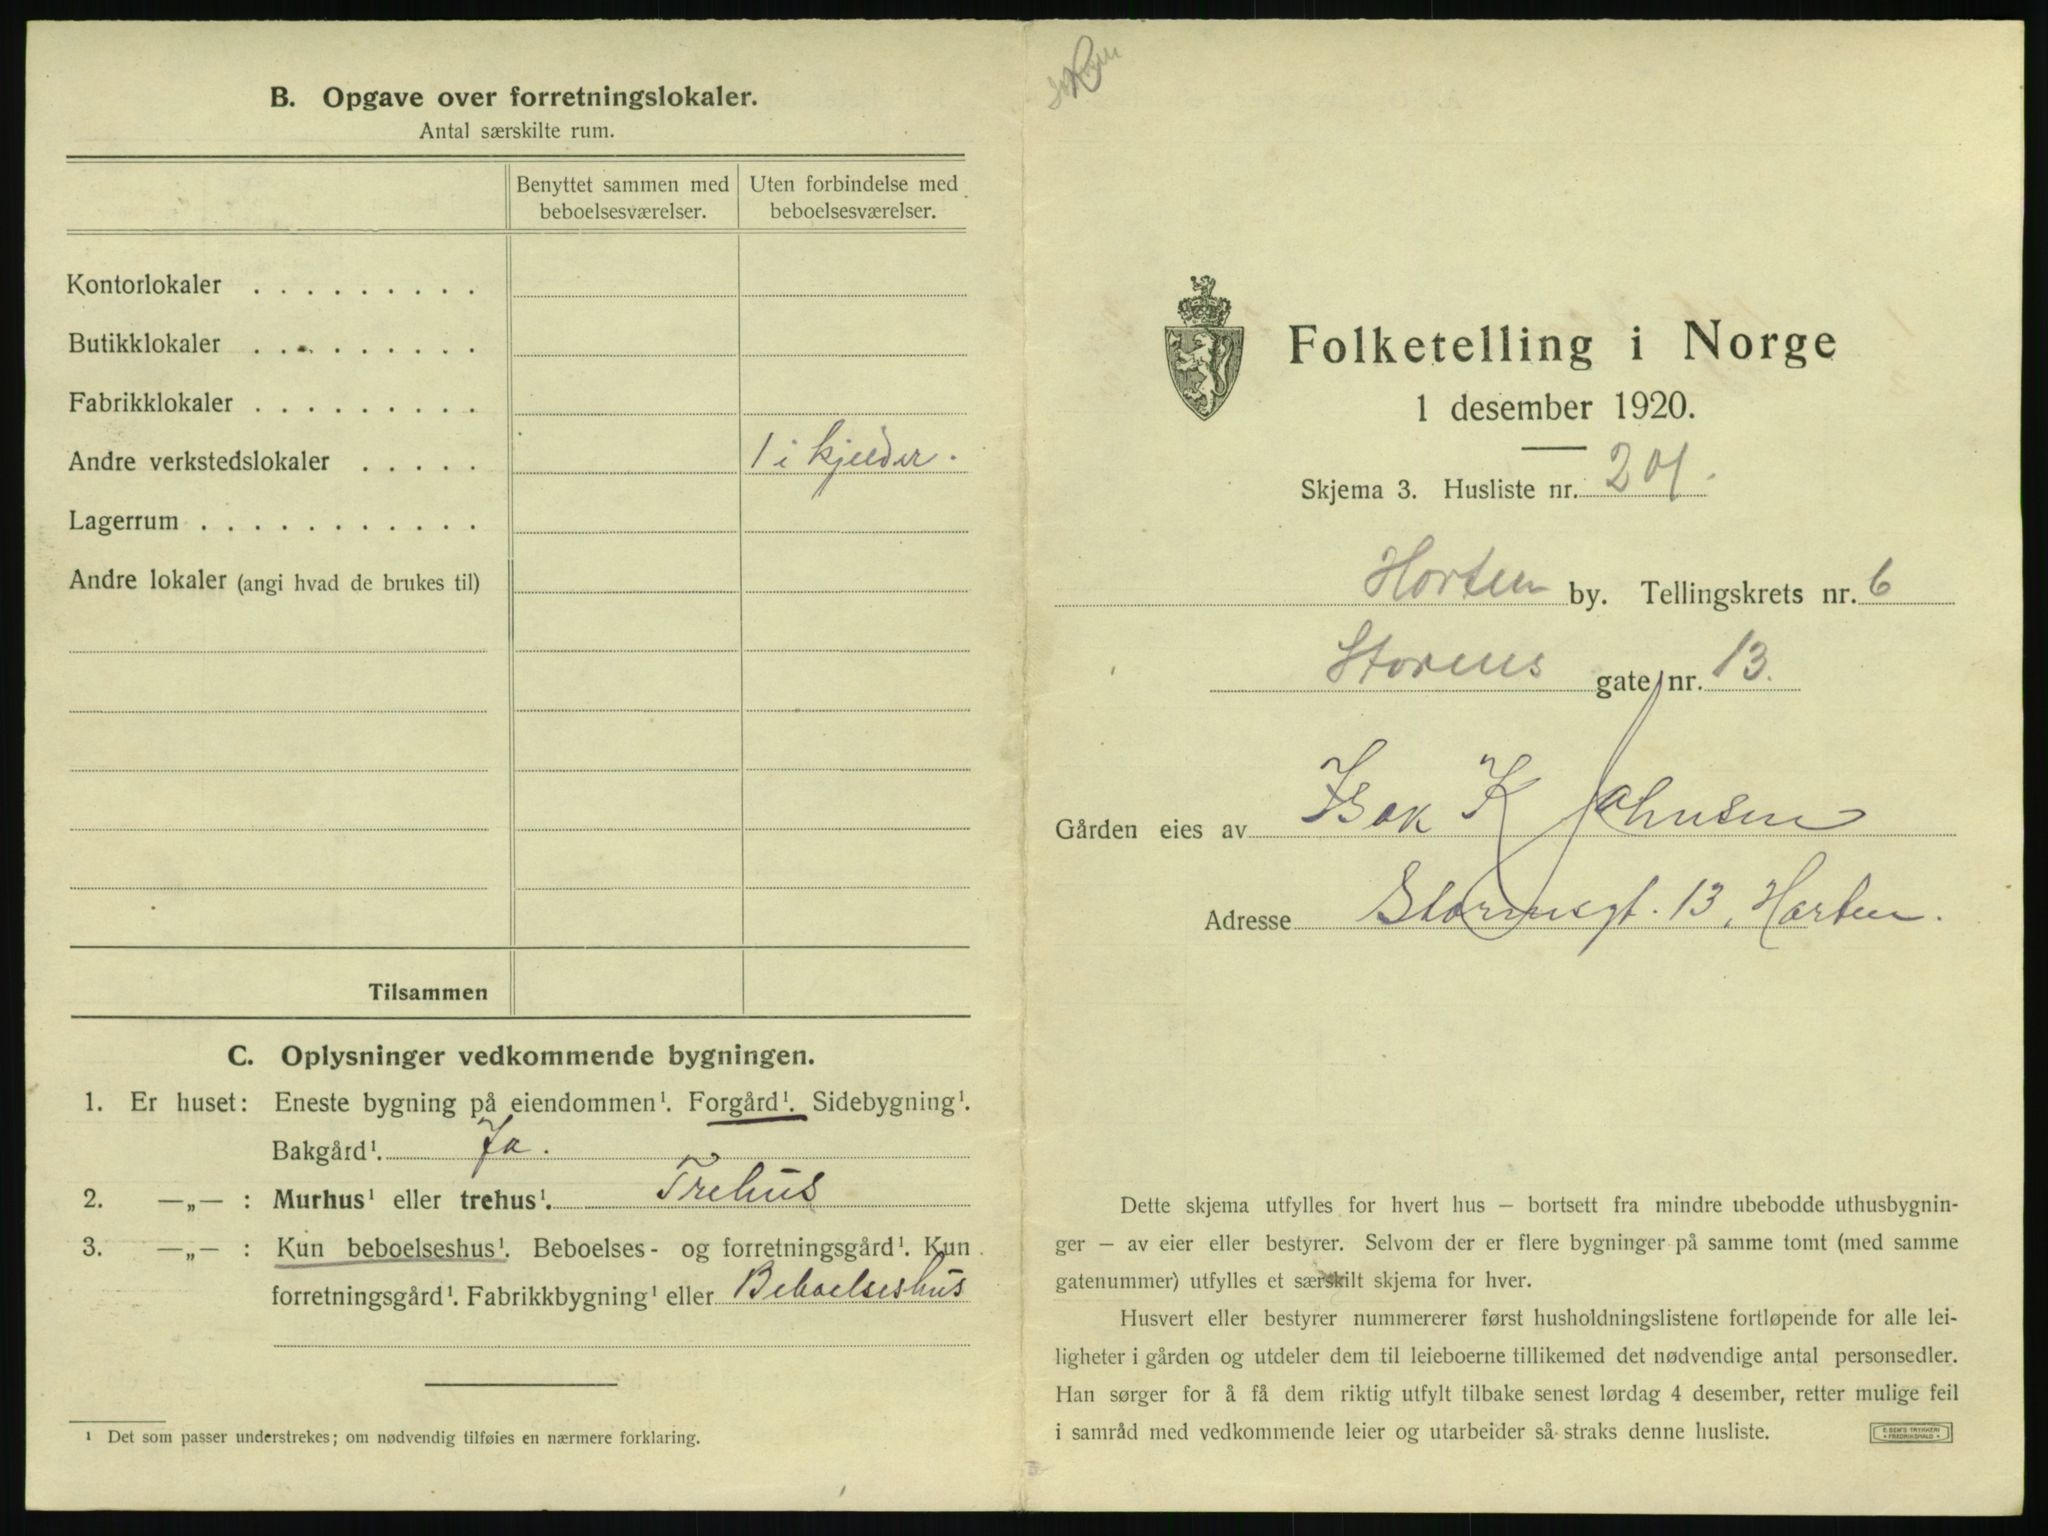 B. Opgave over forretningslokaler.
Antal særskilte rum.
Benyttet sammen med beboelsesværelser.
Uten forbindelse med beboelsesværelser.
Kontorlokaler . . . . . . . . .
Butikklokaler . . . . . . . . .
Fabrikklokaler . . . . . . . . .
Andre verkstedslokaler . . . . . 1 i kjelder.
Lagerrum . . . . . . . . . . .
Andre lokaler (angi hvad de brukes til)
Tilsammen
C. Oplysninger vedkommende bygningen.
1. Er huset: Eneste bygning på eiendommen¹. Forgård¹. Sidebygning¹.
Bakgård¹. Ja.
2. —„— : Murhus¹ eller trehus¹. Trehus
3. —„— : Kun beboelseshus¹. Beboelses- og forretningsgård¹. Kun
forretningsgård¹. Fabrikkbygning¹ eller Beboelseshus
¹ Det som passer understrekes; om nødvendig tilføies en nærmere forklaring.
Folketelling i Norge
1 desember 1920.
Skjema 3. Husliste nr. 201.
Horten by. Tellingskrets nr. 6
Storms gate nr. 13.
Gården eies av Isak K Johnsen
Adresse Stormsgt. 13, Horten.
Dette skjema utfylles for hvert hus – bortsett fra mindre ubebodde uthusbygnin-
ger – av eier eller bestyrer. Selvom der er flere bygninger på samme tomt (med samme
gatenummer) utfylles et særskilt skjema for hver.
Husvert eller bestyrer nummererer først husholdningslistene fortløpende for alle lei-
ligheter i gården og utdeler dem til leieboerne tillikemed det nødvendige antal personsedler.
Han sørger for å få dem riktig utfylt tilbake senest lørdag 4 desember, retter mulige feil
i samråd med vedkommende leier og utarbeider så straks denne husliste.
E. SEM'S TRYKKERI
FREDRIKSHALD